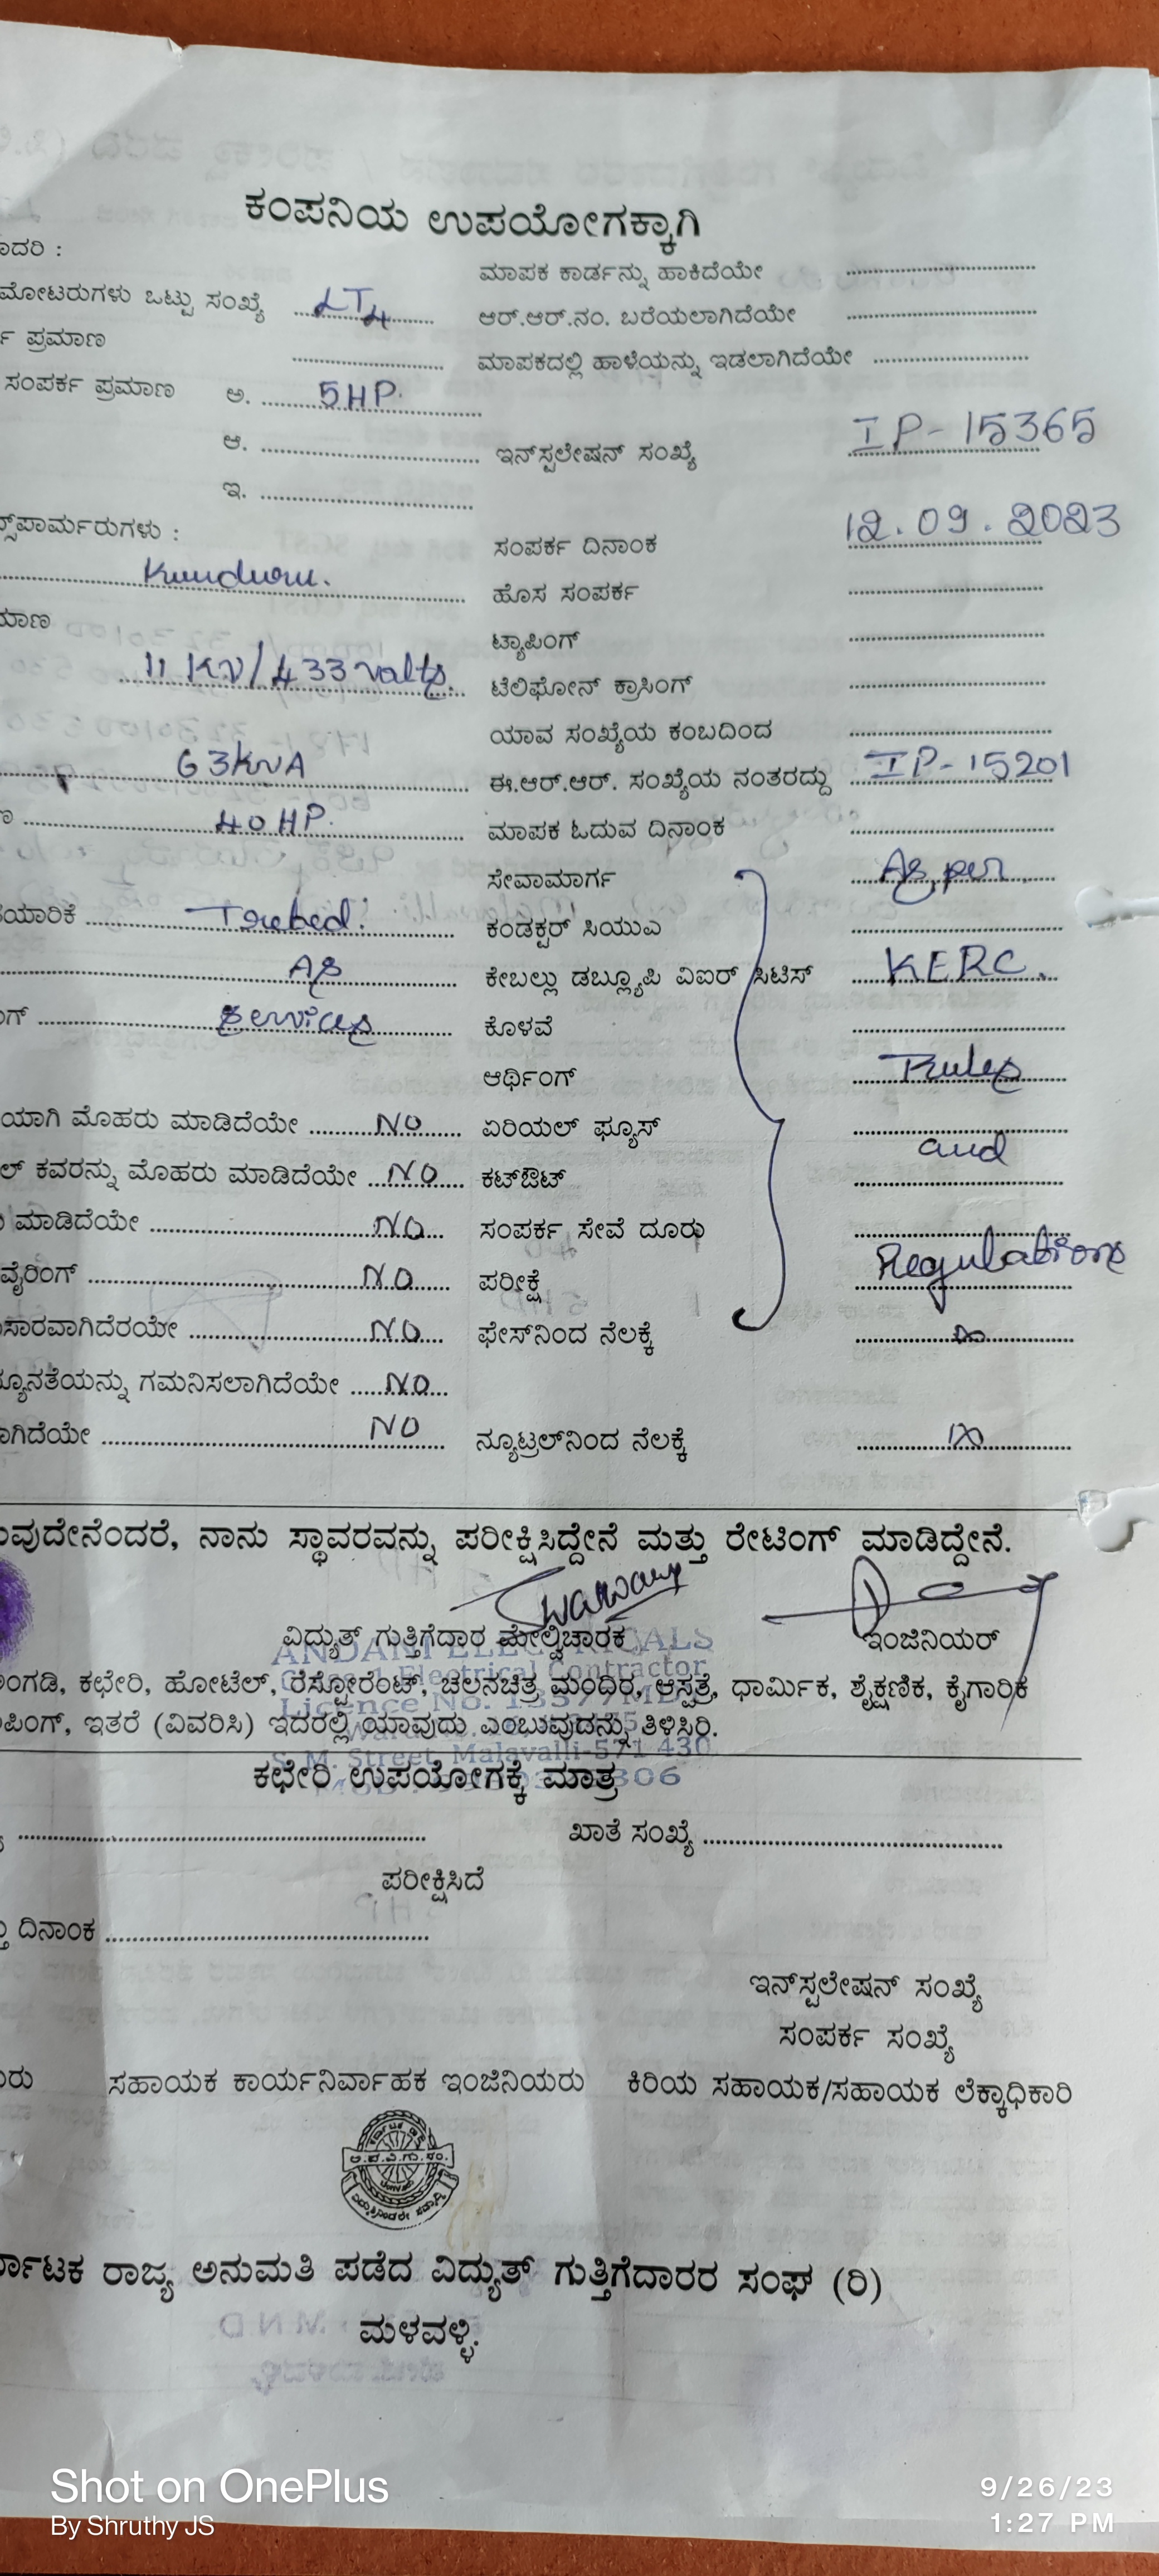 ಕಂಪನಿಯ ಉಪಯೋಗಕ್ಕಾಗಿ
ಾದರಿ :
ಮಾಪಕ ಕಾರ್ಡನ್ನು ಹಾಕಿದೆಯೇ
ಮೋಟರುಗಳು ಒಟ್ಟು ಸಂಖ್ಯೆ LT4
ಆರ್.ಆರ್.ನಂ. ಬರೆಯಲಾಗಿದೆಯೇ
ಪ್ರಮಾಣ
ಮಾಪಕದಲ್ಲಿ ಹಾಳೆಯನ್ನು ಇಡಲಾಗಿದೆಯೇ
ಸಂಪರ್ಕ ಪ್ರಮಾಣ ಅ. 5HP.
ಆ.
ಇನ್‌ಸ್ಟಲೇಷನ್ ಸಂಖ್ಯೆ IP-15365
ಇ.
ಸ್‌ಫಾರ್ಮರುಗಳು :
ಸಂಪರ್ಕ ದಿನಾಂಕ 12.09.2023
ಹೊಸ ಸಂಪರ್ಕ
ಮಾಣ
ಟ್ಯಾಪಿಂಗ್
11 KV/433 volts.
ಟೆಲಿಫೋನ್ ಕ್ರಾಸಿಂಗ್
ಯಾವ ಸಂಖ್ಯೆಯ ಕಂಬದಿಂದ
63KVA
ಈ.ಆರ್.ಆರ್. ಸಂಖ್ಯೆಯ ನಂತರದ್ದು IP-15201
40 HP.
ಮಾಪಕ ಓದುವ ದಿನಾಂಕ
ಸೇವಾಮಾರ್ಗ As per
ಯಾರಿಕೆ
ಕಂಡಕ್ಟರ್ ಸಿಯುಎ
As
ಕೇಬಲ್ಲು ಡಬ್ಲ್ಯೂಪಿ ವಿಐರ್ ಸಿಟಿಸ್ KERC.
ಗ್ Services
ಕೊಳವೆ
ಆರ್ಥಿಂಗ್ Rules
ಯಾಗಿ ಮೊಹರು ಮಾಡಿದೆಯೇ NO
ಏರಿಯಲ್ ಫ್ಯೂಸ್ and
ಲ್ ಕವರನ್ನು ಮೊಹರು ಮಾಡಿದೆಯೇ NO
ಕಟ್‌ಔಟ್
ಮಾಡಿದೆಯೇ NO
ಸಂಪರ್ಕ ಸೇವೆ ದೂರು
ವೈರಿಂಗ್ NO
ಪರೀಕ್ಷೆ Regulations
ಸಾರವಾಗಿದೆರಯೇ NO
ಫೇಸ್‌ನಿಂದ ನೆಲಕ್ಕೆ ∞
ನ್ಯೂನತೆಯನ್ನು ಗಮನಿಸಲಾಗಿದೆಯೇ NO
ಾಗಿದೆಯೇ NO
ನ್ಯೂಟ್ರಲ್‌ನಿಂದ ನೆಲಕ್ಕೆ ∞
ುವುದೇನೆಂದರೆ, ನಾನು ಸ್ಥಾವರವನ್ನು ಪರೀಕ್ಷಿಸಿದ್ದೇನೆ ಮತ್ತು ರೇಟಿಂಗ್ ಮಾಡಿದ್ದೇನೆ.
ವಿದ್ಯುತ್ ಗುತ್ತಿಗೆದಾರ ಮೇಲ್ವಿಚಾರಕ ಇಂಜಿನಿಯರ್
Electrical Contractor
ಅಂಗಡಿ, ಕಛೇರಿ, ಹೋಟೆಲ್, ರೆಸ್ಟೋರೆಂಟ್, ಚಲನಚಿತ್ರ ಮಂದಿರ, ಆಸ್ಪತ್ರೆ, ಧಾರ್ಮಿಕ, ಶೈಕ್ಷಣಿಕ, ಕೈಗಾರಿಕೆ
Licence No.
ಪಿಂಗ್, ಇತರೆ (ವಿವರಿಸಿ) ಇದರಲ್ಲಿ ಯಾವುದು ಎಂಬುವುದನ್ನು ತಿಳಿಸಿರಿ.
S. M. Street, Malavalli-571 430
ಕಛೇರಿ ಉಪಯೋಗಕ್ಕೆ ಮಾತ್ರ
ಖಾತೆ ಸಂಖ್ಯೆ
ಪರೀಕ್ಷಿಸಿದೆ
ದಿನಾಂಕ
ಇನ್‌ಸ್ಟಲೇಷನ್ ಸಂಖ್ಯೆ
ಸಂಪರ್ಕ ಸಂಖ್ಯೆ
ರು ಸಹಾಯಕ ಕಾರ್ಯನಿರ್ವಾಹಕ ಇಂಜಿನಿಯರು ಕಿರಿಯ ಸಹಾಯಕ/ಸಹಾಯಕ ಲೆಕ್ಕಾಧಿಕಾರಿ
ರ್ನಾಟಕ ರಾಜ್ಯ ಅನುಮತಿ ಪಡೆದ ವಿದ್ಯುತ್ ಗುತ್ತಿಗೆದಾರರ ಸಂಘ (ರಿ)
ಮಳವಳ್ಳಿ.
Shot on OnePlus
By Shruthy JS
9/26/23
1:27 PM